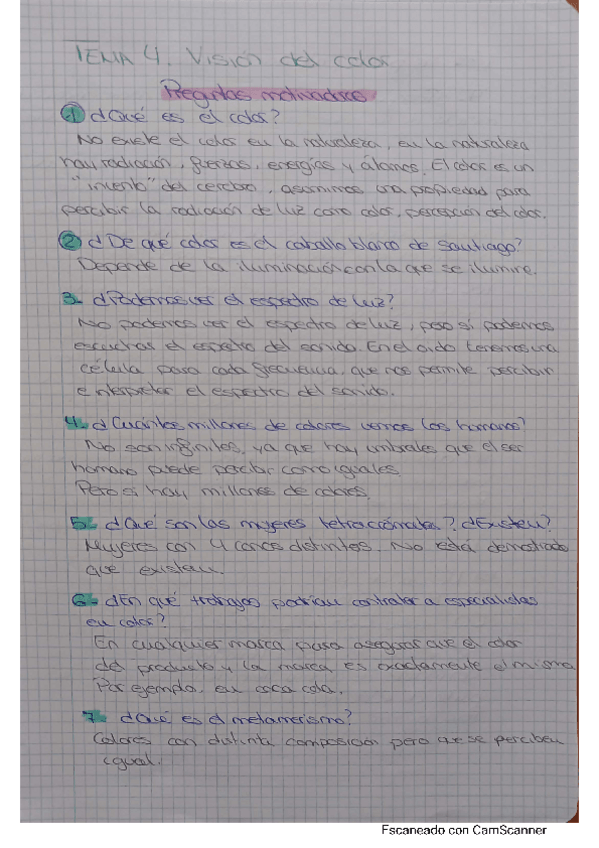 TEMA 4. Visión del color
Preguntas motivadoras
1 ¿Qué es el color?
No existe el color en la naturaleza, en la naturaleza
hay radiación, fuerzas, energías y átomos. El color es un
"invento" del cerebro, asumimos una propiedad para
percibir la radiación de luz como color, percepción del color.
2 ¿De qué color es el caballo blanco de Santiago?
Depende de la iluminación con la que se ilumine.
3- ¿Podemos ver el espectro de luz?
No podemos ver el espectro de luz, pero sí podemos
escuchar el espectro del sonido. En el oido tenemos una
célula para cada frecuencia, que nos permite percibir
e interpretar el espectro del sonido.
4- ¿Cuántos millones de colores vemos los humanos?
No son infinitos, ya que hay umbrales que el ser
humano puede percibir como iguales.
Pero si hay millones de colores.
5- ¿Qué son las mujeres tetracrómatas? ¿Existen?
Mujeres con 4 conos distintos. No está demostrado
que existen.
6- ¿En qué trabajos podrían contratar a especialistas
en color?
En cualquier marca para asegurar que el color
del producto y la marca es exactamente el mismo
Por ejemplo, en coca cola.
7- ¿Qué es el metamerismo?
Colores con distinta composición pero que se perciben
igual.
Escaneado con CamScanner